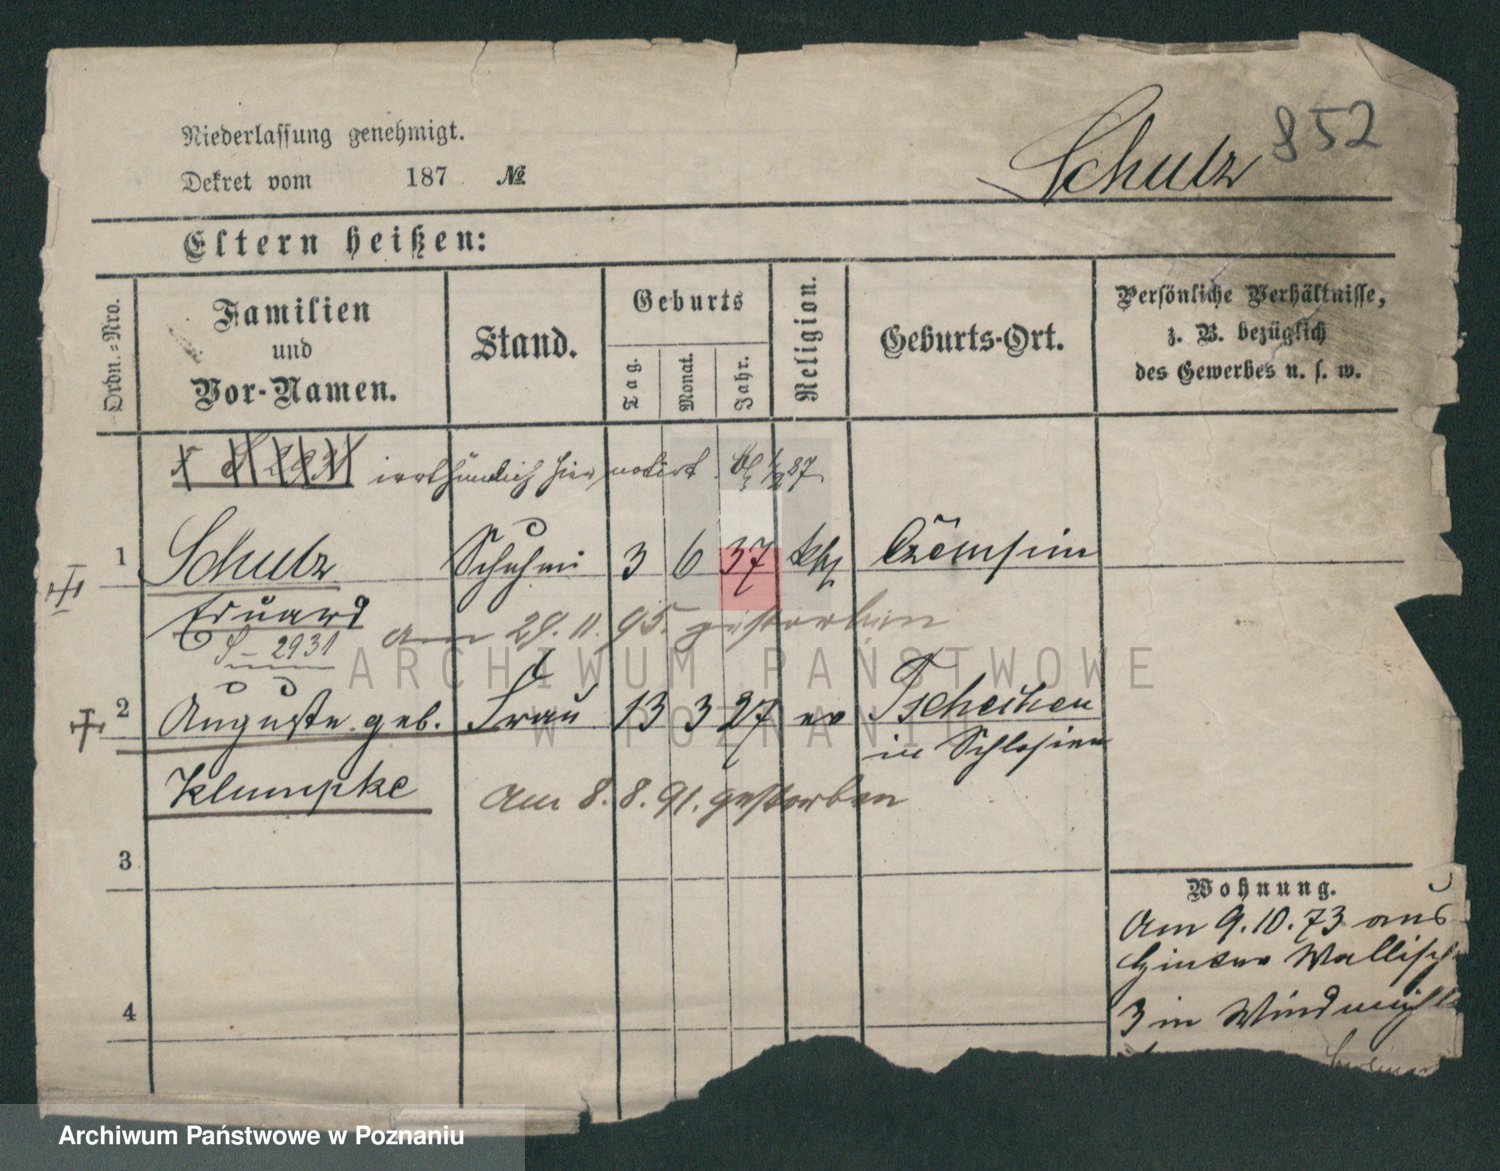 852
Niederlassung genehmigt.
Dekret vom 187 №
Schulz
Eltern heißen:
Ordn.-Nro.
Familien und Vor-Namen.
Stand.
Geburts
Tag. Monat. Jahr.
Religion.
Geburts-Ort.
Persönliche Verhältnisse, z. B. bezüglich des Gewerbes u. s. w.
irrthümlich hier notirt
1 Schulz 3 6 37 kth
Eduard
S-2931 am 29.11.95. gestorben
ARCHIWUM PAŃSTWOWE
W POZNANIU
2 Auguste geb. Frau 13 3 27 ev
in Schlesien
Klumpke am 8.8.91. gestorben
3
4
Wohnung.
Am 9.10.73 aus
Hinter Wallisch
3 in Windmühl
Archiwum Państwowe w Poznaniu